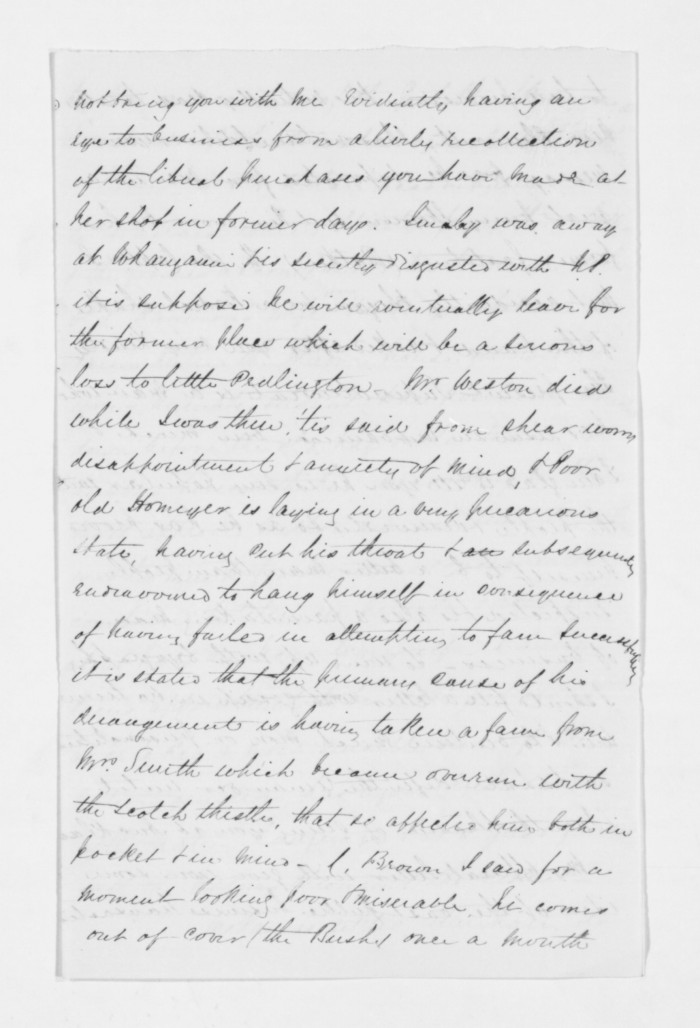 not bring you with me Evidently having an
eye to business from a lively recollection
of the liberal purchases you have made at
her shop in former days. was away
at Whanganui & is secretly disgusted with N.P.
it is supposed he will eventually leave for
the former place which will be a serious
loss to little Pedlington - Mr. Weston died
while I was there, 'tis said from shear worry
disappointment & anxiety of mind, & Poor
old Homeyer is laying in a very precarious
state, having cut his throat & subsequently
endeavoured to hang himself in consequence
of having failed in attempting to farm successfully
it is stated that the primary cause of his
derangement is having taken a farm from
Mrs. Smith which became overrun with
the scotch thistle, that so affected him both in
pocket & in mind - C. Brown I saw for a
moment looking poor & miserable he comes
out of cover (the Bush) once a month